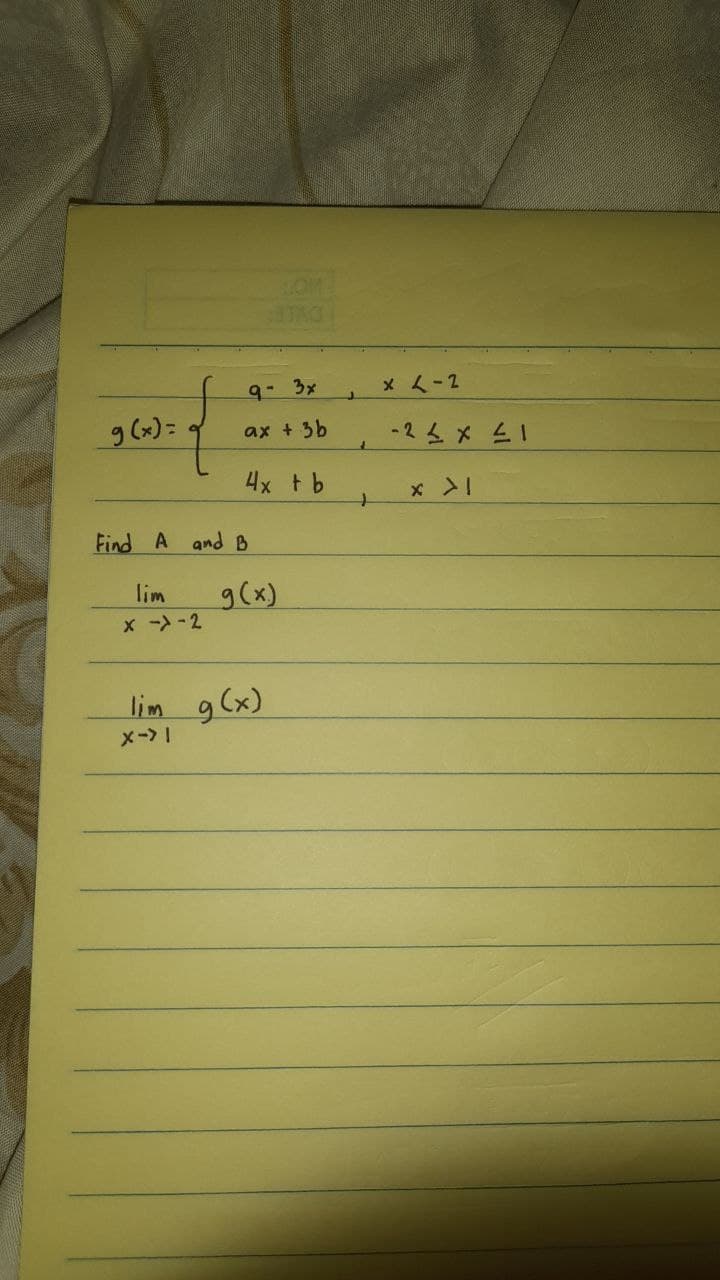 NO.:
DATE:
g(x)= { 9- 3x , x < -2
ax + 3b , -2 ≤ x ≤ 1
4x + b , x > 1
Find A and B
lim g(x)
x -> -2
lim g(x)
x -> 1